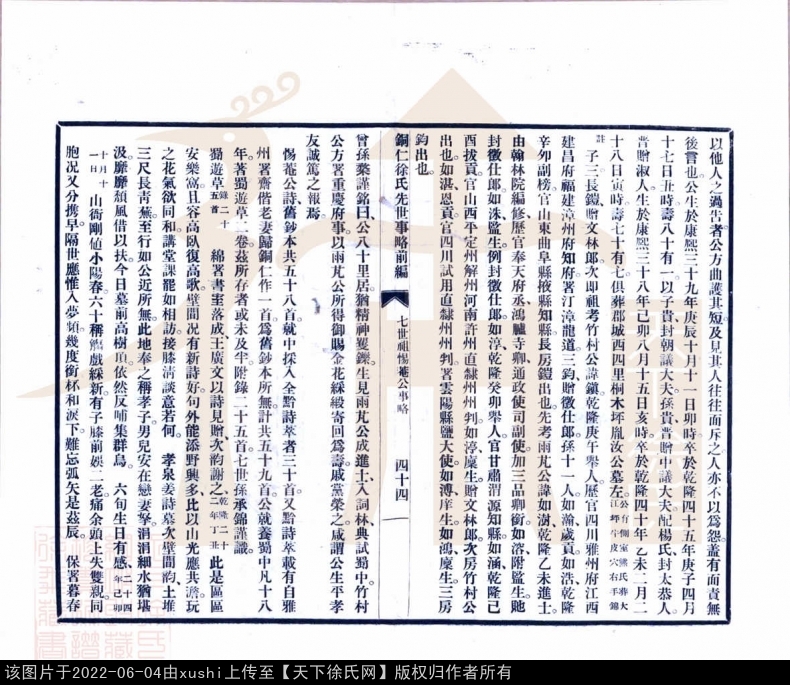 以他人之過告者公方曲護其短及見其人往往面斥之人亦不以爲怨蓋有面責無
後言也公生於康熙三十九年庚辰十月十一日卯時卒於乾隆四十五年庚子四月
十七日丑時壽八十有一以子貴封朝議大夫孫貴晉贈中議大夫配楊氏封太恭人
晉贈淑人生於康熙三十八年己卯八月十五日亥時卒於乾隆四十年乙未二月二
十八日寅時壽七十有七俱葬郡城西四里桐木坪胤汝公墓左公有側室熊氏葬大江岬牛皮穴右手錦
註
子三長鎧贈文林郎次即祖考竹村公諱鎮乾隆庚午舉人歷官四川雅州府江西
建昌府福建漳州府知府署汀漳龍道三鈞贈徵仕郎孫十一人如瀚歲貢如浩乾隆
辛卯副榜官山東曲阜縣掖縣知縣長房鎧出也先考雨芃公諱如澍乾隆乙未進士
由翰林院編修歷官奉天府丞鴻臚寺卿通政使司副使加三品卿銜如溶附監生貤
封徵仕郎如洙監生例封徵仕郎如淳乾隆癸卯舉人官甘肅渭源知縣如涵乾隆己
酉拔貢官山西平定州解州河南許州直隸州州判如渟廩生贈文林郎次房竹村公
出也如湛恩貢官四川試用直隸州州判署雲陽縣鹽大使如溥庠生如鴻廩生三房
鈞出也
銅仁徐氏先世事略前編
七世祖惕菴公事略
四十四
曾孫棻謹銘曰公八十里居猶精神矍鑠生見雨芃公成進士入詞林典試蜀中竹村
公方署重慶府事以雨芃公所得御賜金花綵緞寄回爲壽戚黨榮之咸謂公生平孝
友誠篤之報焉
惕菴公詩舊鈔本共五十八首就中採入全黔詩萃者三十首又黔詩萃載有自雅
州署齋偕老妻歸銅仁作一首爲舊鈔本所無計共五十九首公就養蜀中凡十八
年著蜀遊草二卷茲所存者或未及半附錄二十五首七世孫承錦謹識
蜀遊草錄二十五首
綿署書室落成王廣文以詩見贈次韵謝之乾隆二十二年丁丑
此是區區
安樂窩且容高臥復高歌壁間况有新詩好句外能添野興多比以山光應共澹玩
之花氣欲同和講堂課罷如相訪接膝淸談意若何
孝泉姜詩墓次壁間韵
土堆
三尺長靑蕪至行如公近所無此地奉之稱孝子男兒安在戀妻孥涓涓細水猶堪
汲靡靡頹風借以扶今日墓前高樹頂依然反哺集群烏
六旬生日有感二十四年己卯十月十一日
山衙剛值小陽春六十稱觴戲綵新有子膝前娛二老痛余頭上失雙親同
胞况又分攜早隔世應惟入夢頻幾度銜杯和淚下難忘弧矢是茲辰
保署暮春
该图片于2022-06-04由xushi上传至【天下徐氏网】版权归作者所有